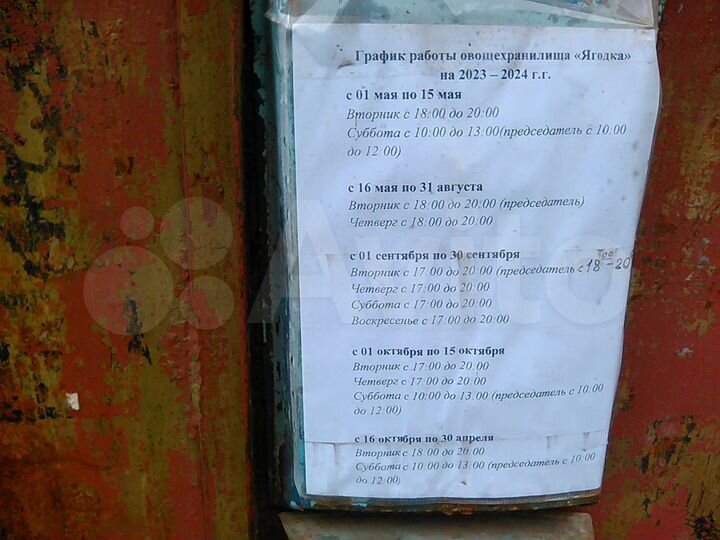 График работы овощехранилища «Ягодка»
на 2023 – 2024 г.г.
с 01 мая по 15 мая
Вторник с 18:00 до 20:00
Суббота с 10:00 до 13:00(председатель с 10:00
до 12:00)
с 16 мая по 31 августа
Вторник с 18:00 до 20:00 (председатель)
Четверг с 18:00 до 20:00
с 01 сентября по 30 сентября
Вторник с 17:00 до 20:00 (председатель с 18 00 - 20
Четверг с 17:00 до 20:00
Суббота с 17:00 до 20:00
Воскресенье с 17:00 до 20:00
с 01 октября по 15 октября
Вторник с 17:00 до 20:00
Четверг с 17:00 до 20:00
Суббота с 10:00 до 13:00 (председатель с 10:00
до 12:00)
с 16 октября по 30 апреля
Вторник с 18:00 до 20:00
Суббота с 10:00 до 13:00 (председатель с 10:00
до 12:00)
Avito